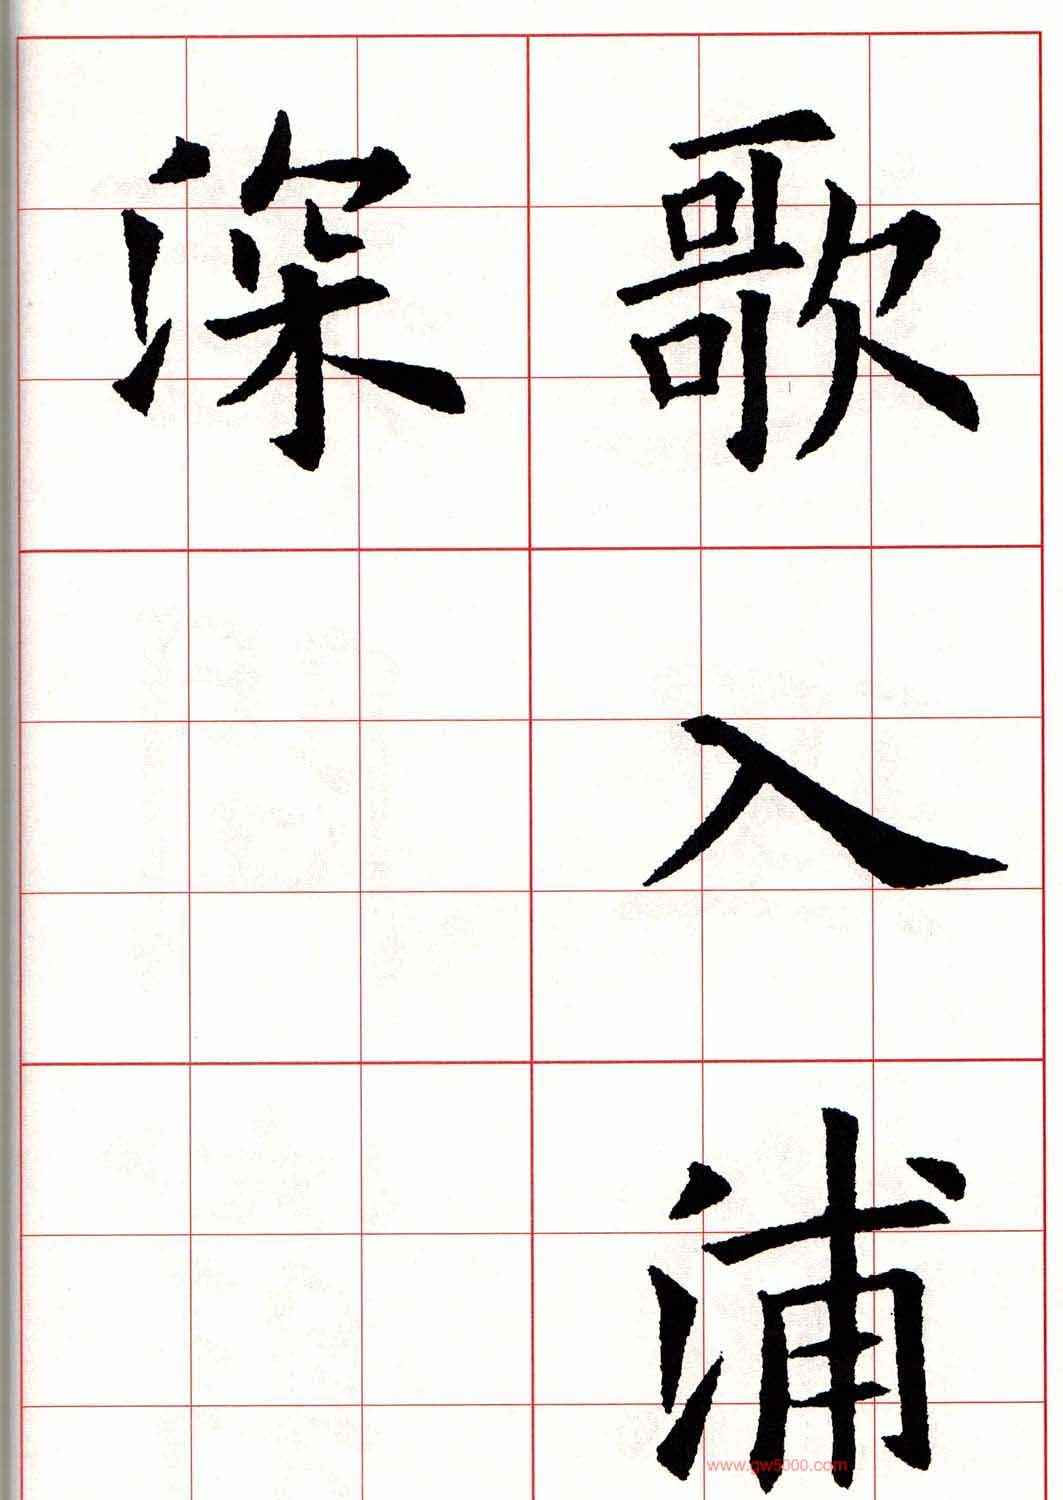 歌入浦
深
www.gw5000.com